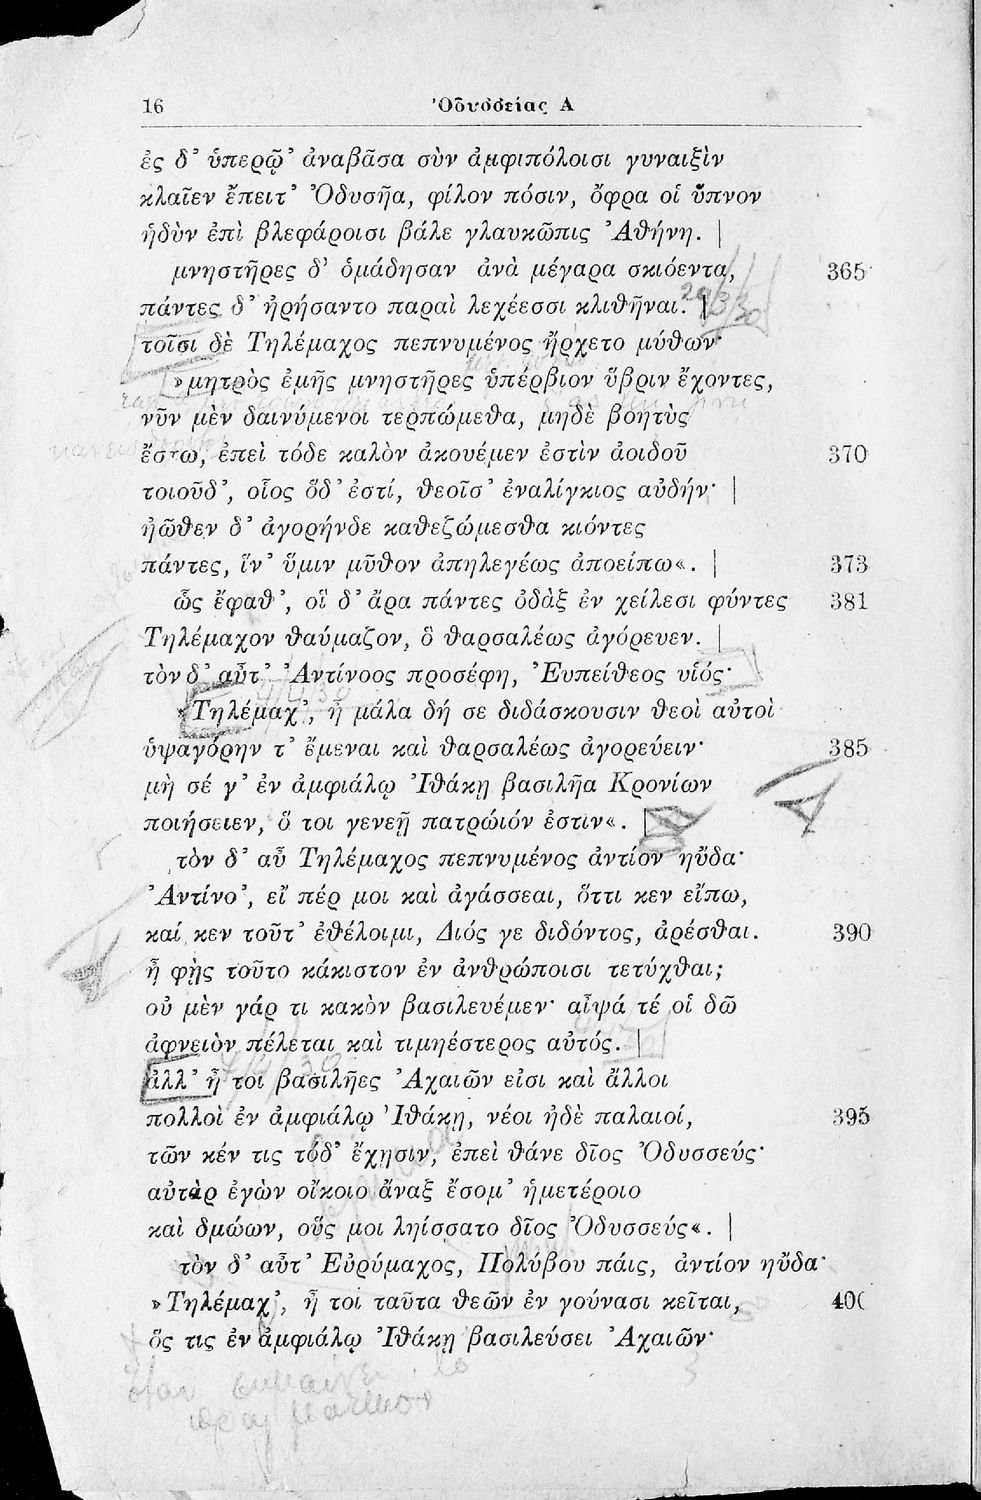 16
Ὀδυσσείας Α
ἐς δ' ὑπερῷ' ἀναβᾶσα σὺν ἀμφιπόλοισι γυναιξὶν
κλαῖεν ἔπειτ' Ὀδυσῆα, φίλον πόσιν, ὄφρα οἱ ὕπνον
ἡδὺν ἐπὶ βλεφάροισι βάλε γλαυκῶπις Ἀθήνη. |
μνηστῆρες δ' ὁμάδησαν ἀνὰ μέγαρα σκιόεντα, 365
πάντες δ' ἠρήσαντο παραὶ λεχέεσσι κλιθῆναι. |
τοῖσι δὲ Τηλέμαχος πεπνυμένος ἤρχετο μύθων·
»μητρὸς ἐμῆς μνηστῆρες ὑπέρβιον ὕβριν ἔχοντες,
νῦν μὲν δαινύμενοι τερπώμεθα, μηδὲ βοητὺς
ἔστω, ἐπεὶ τόδε καλὸν ἀκουέμεν ἐστὶν ἀοιδοῦ 370
τοιοῦδ', οἷος ὅδ' ἐστί, θεοῖσ' ἐναλίγκιος αὐδήν· |
ἠῶθεν δ' ἀγορήνδε καθεζώμεσθα κιόντες
πάντες, ἵν' ὕμιν μῦθον ἀπηλεγέως ἀποείπω«. | 373
ὣς ἔφαθ', οἳ δ' ἄρα πάντες ὀδὰξ ἐν χείλεσι φύντες 381
Τηλέμαχον θαύμαζον, ὃ θαρσαλέως ἀγόρευεν. |
τὸν δ' αὖτ' Ἀντίνοος προσέφη, Ἐυπείθεος υἱός·
«Τηλέμαχ', ἦ μάλα δή σε διδάσκουσιν θεοὶ αὐτοὶ
ὑψαγόρην τ' ἔμεναι καὶ θαρσαλέως ἀγορεύειν· 385
μὴ σέ γ' ἐν ἀμφιάλῳ Ἰθάκῃ βασιλῆα Κρονίων
ποιήσειεν, ὅ τοι γενεῇ πατρώιόν ἐστιν«. |
τὸν δ' αὖ Τηλέμαχος πεπνυμένος ἀντίον ηὔδα·
Ἀντίνο', εἴ πέρ μοι καὶ ἀγάσσεαι, ὅττι κεν εἴπω,
καί κεν τοῦτ' ἐθέλοιμι, Διός γε διδόντος, ἀρέσθαι. 390
ἦ φῂς τοῦτο κάκιστον ἐν ἀνθρώποισι τετύχθαι;
οὐ μὲν γάρ τι κακὸν βασιλευέμεν· αἶψά τέ οἱ δῶ
ἀφνειὸν πέλεται καὶ τιμηέστερος αὐτός. |
ἀλλ' ἦ τοι βασιλῆες Ἀχαιῶν εἰσι καὶ ἄλλοι
πολλοὶ ἐν ἀμφιάλῳ Ἰθάκῃ, νέοι ἠδὲ παλαιοί, 395
τῶν κέν τις τόδ' ἔχῃσιν, ἐπεὶ θάνε δῖος Ὀδυσσεύς·
αὐτὰρ ἐγὼν οἴκοιο ἄναξ ἔσομ' ἡμετέροιο
καὶ δμώων, οὕς μοι ληίσσατο δῖος Ὀδυσσεύς«. |
τὸν δ' αὖτ' Εὐρύμαχος, Πολύβου πάις, ἀντίον ηὔδα·
»Τηλέμαχ', ἦ τοι ταῦτα θεῶν ἐν γούνασι κεῖται, 400
ὅς τις ἐν ἀμφιάλῳ Ἰθάκῃ βασιλεύσει Ἀχαιῶν·